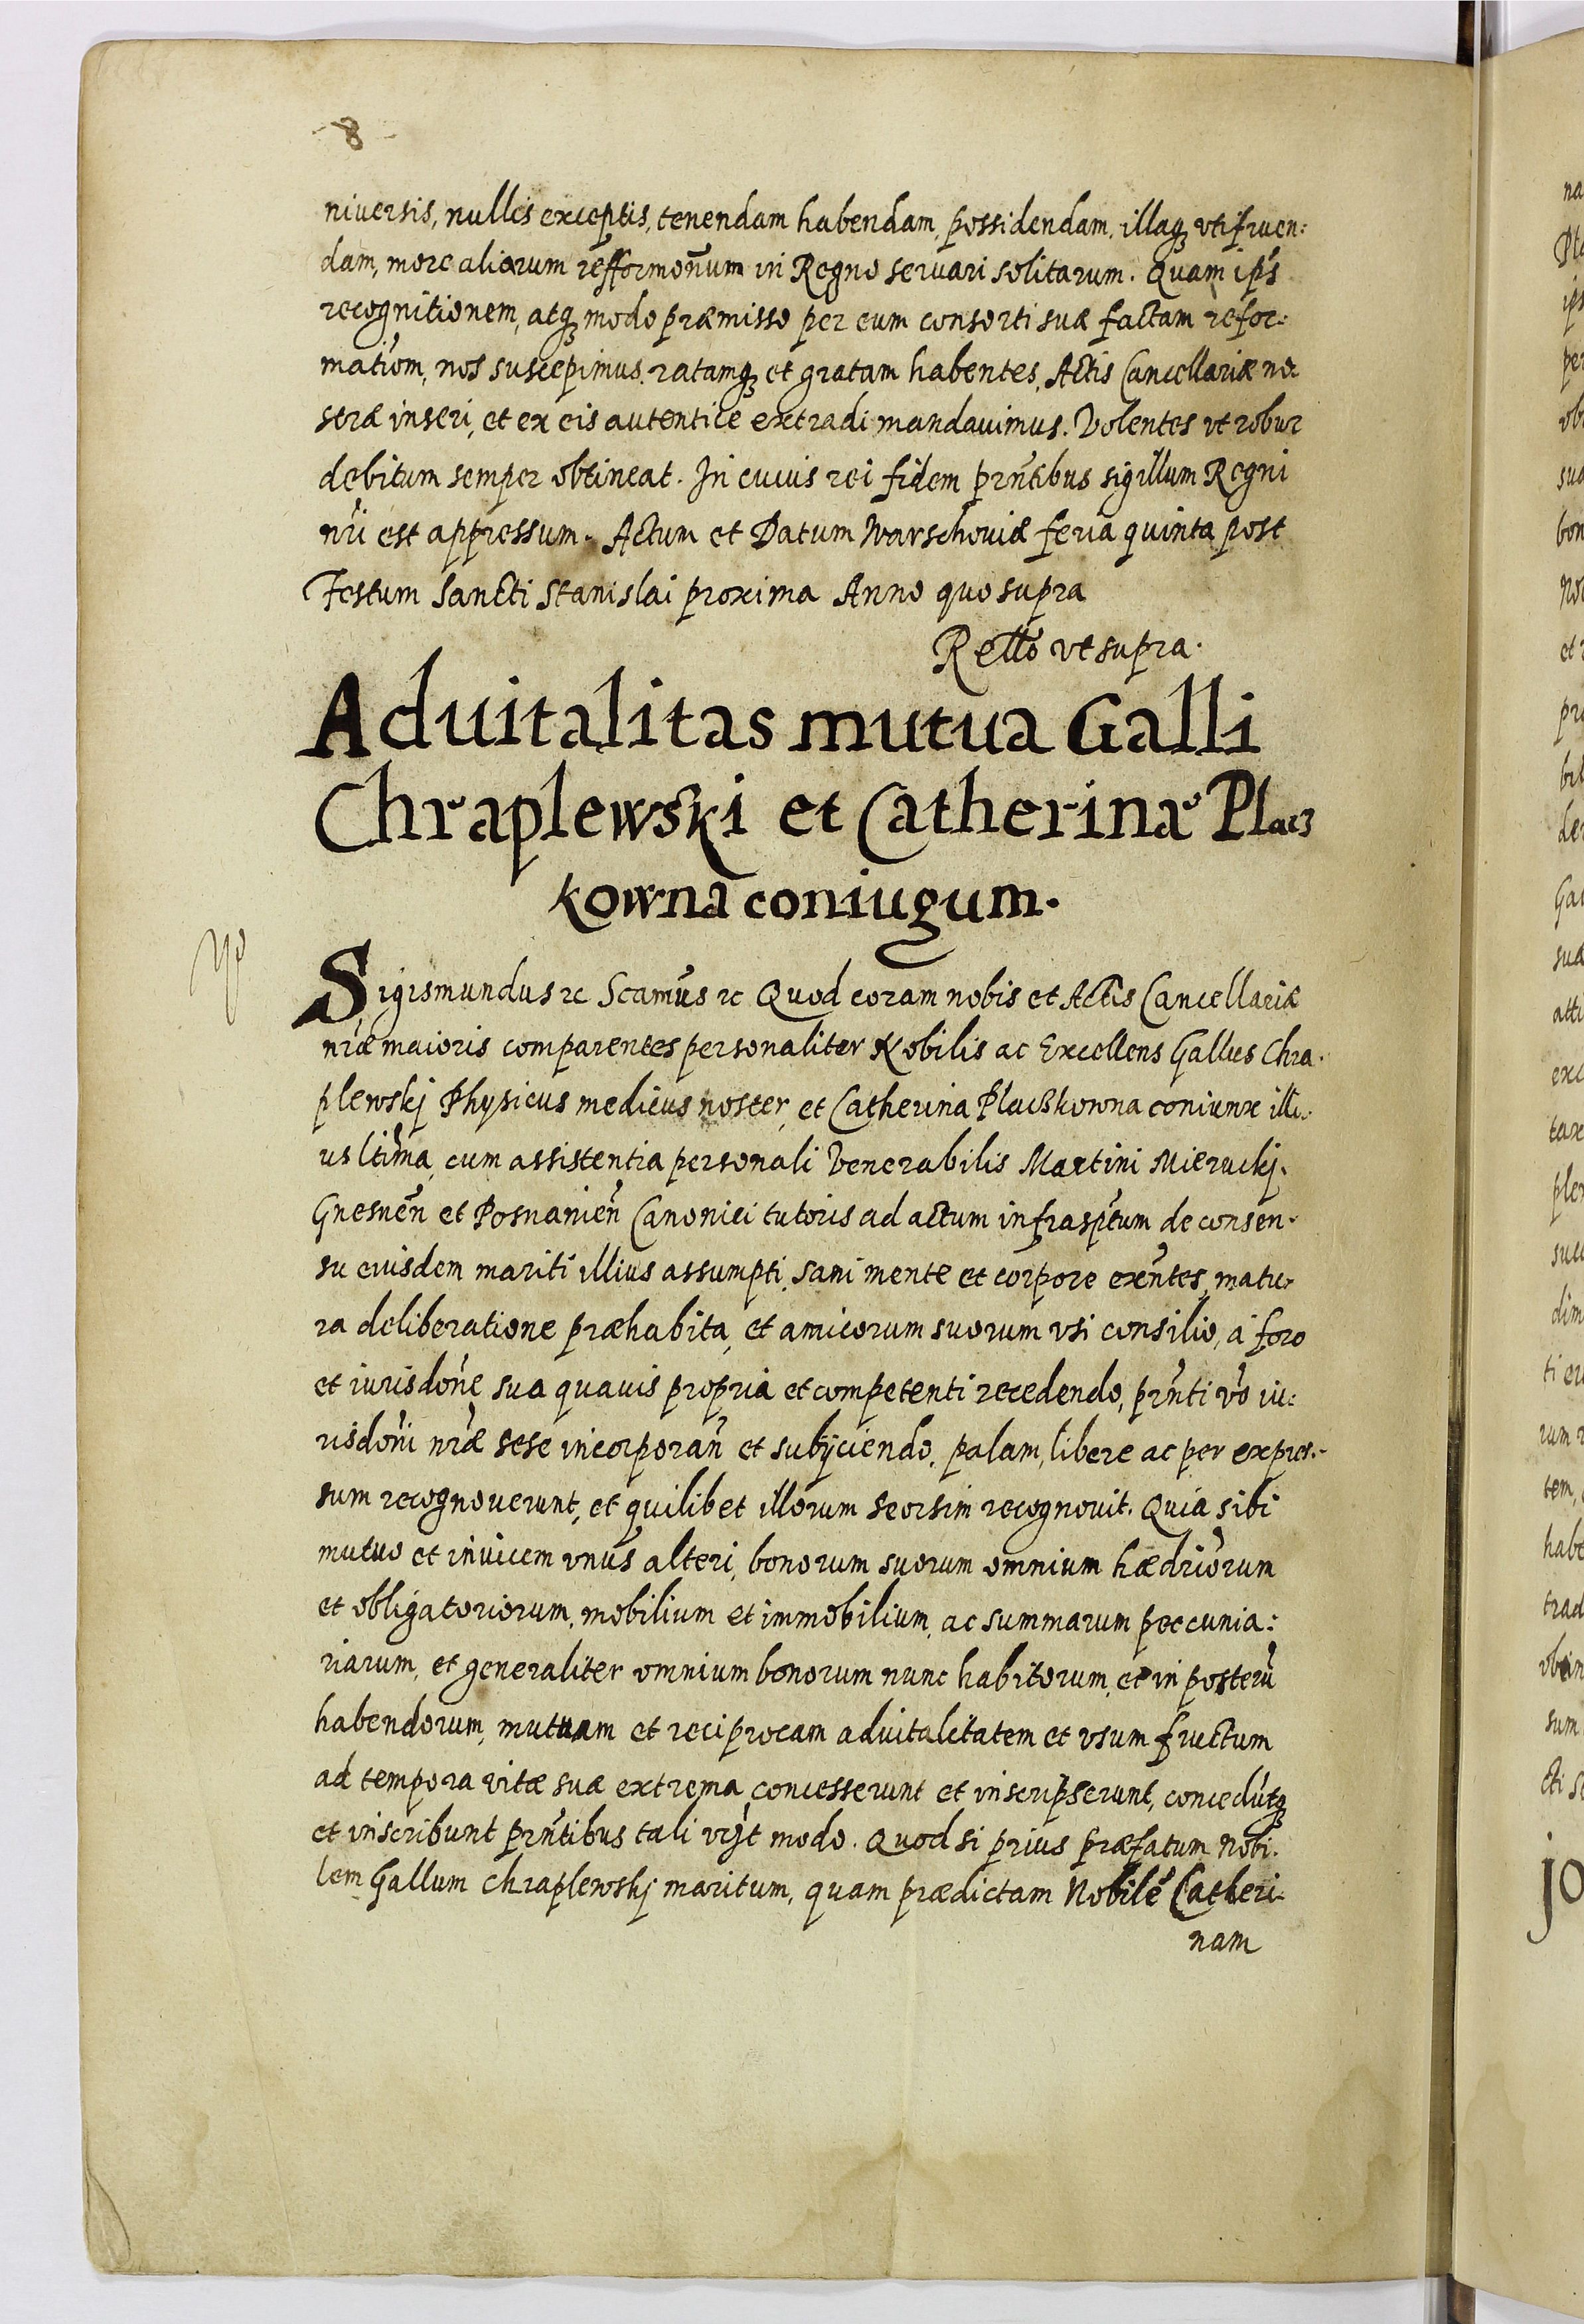 8
niuersis, nullis exceptis, tenendam habendam, possidendam, illaqꝫ vtifruen:
dam, more aliorum refformon̄um in Regno seruari solitarum. Quam ip̄s
recognitionem, atqꝫ modo præmisso per eum consorti suæ factam refor:
matiom, nos suscepimus, ratamqꝫ et gratam habentes, Actis Cancellariæ no-
stræ inseri, et ex eis autentice extradi mandauimus. Volentes vt robur
debitum semper obtineat. In cuius rei fidem prn̄tibus sigillum Regni
nr̄i est appressum. Actum et Datum Warschouiæ feria quinta post
Festum Sancti Stanislai proxima Anno quo supra
Rello vt supra.
Aduitalitas mutua Galli
Chraplewski et Catherinæ Placz
kowna coniugum.
Sigismundus ꝛc Scamus ꝛc Quod coram nobis et Actis Cancellariæ
nr̄æ maioris comparentes personaliter Nobilis ac Excellens Gallus Chra-
plewskj Physicus medicus noster, et Catherina Placzkowna coniunx illi-
us ltima, cum assistentia personali Venerabilis Martini Mieruckj.
Gnesnen̄ et Posnanien̄ Canonici tutoris ad actum infrasptum de consen-
su eiusdem mariti illius assumpti, sani mente et corpore exn̄tes, matu-
ra deliberatione præhabita, et amicorum suorum vsi consilio, a foro
et iurisdon̄e sua quauis propria et competenti recedendo, prn̄ti vo iu:
risdon̄i nr̄æ sese incorporan̄ et subijciendo, palam, libere ac per expres-
sum recognouerunt, et quilibet illorum seorsim recognouit. Quia sibi
mutuo et inuicem vnus alteri, bonorum suorum omnium hædriorum
et obligatoriorum, mobilium et immobilium, ac summarum peccunia:
riarum, et generaliter omnium bonorum nunc habitorum, et in posterū
habendorum, mutuam et reciprocam aduitalitatem et vsum fructum
ad tempora vitæ suæ extrema, concesserunt et inscripserunt, concedūtqꝫ
et inscribunt prn̄tibus tali vꝫt modo. Quod si prius præfatum Nobi-
lem Gallum Chraplewskj maritum, quam prædictam Nobilē Catheri-
nam